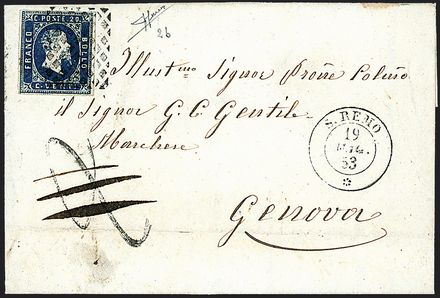 C. POSTE 20.
FRANCO
BOLLO
C. VENTI
26
Illust.mo Signor Prone
il Signor G. C. Gentile
Marchese
Genova
S. REMO
19
53
*